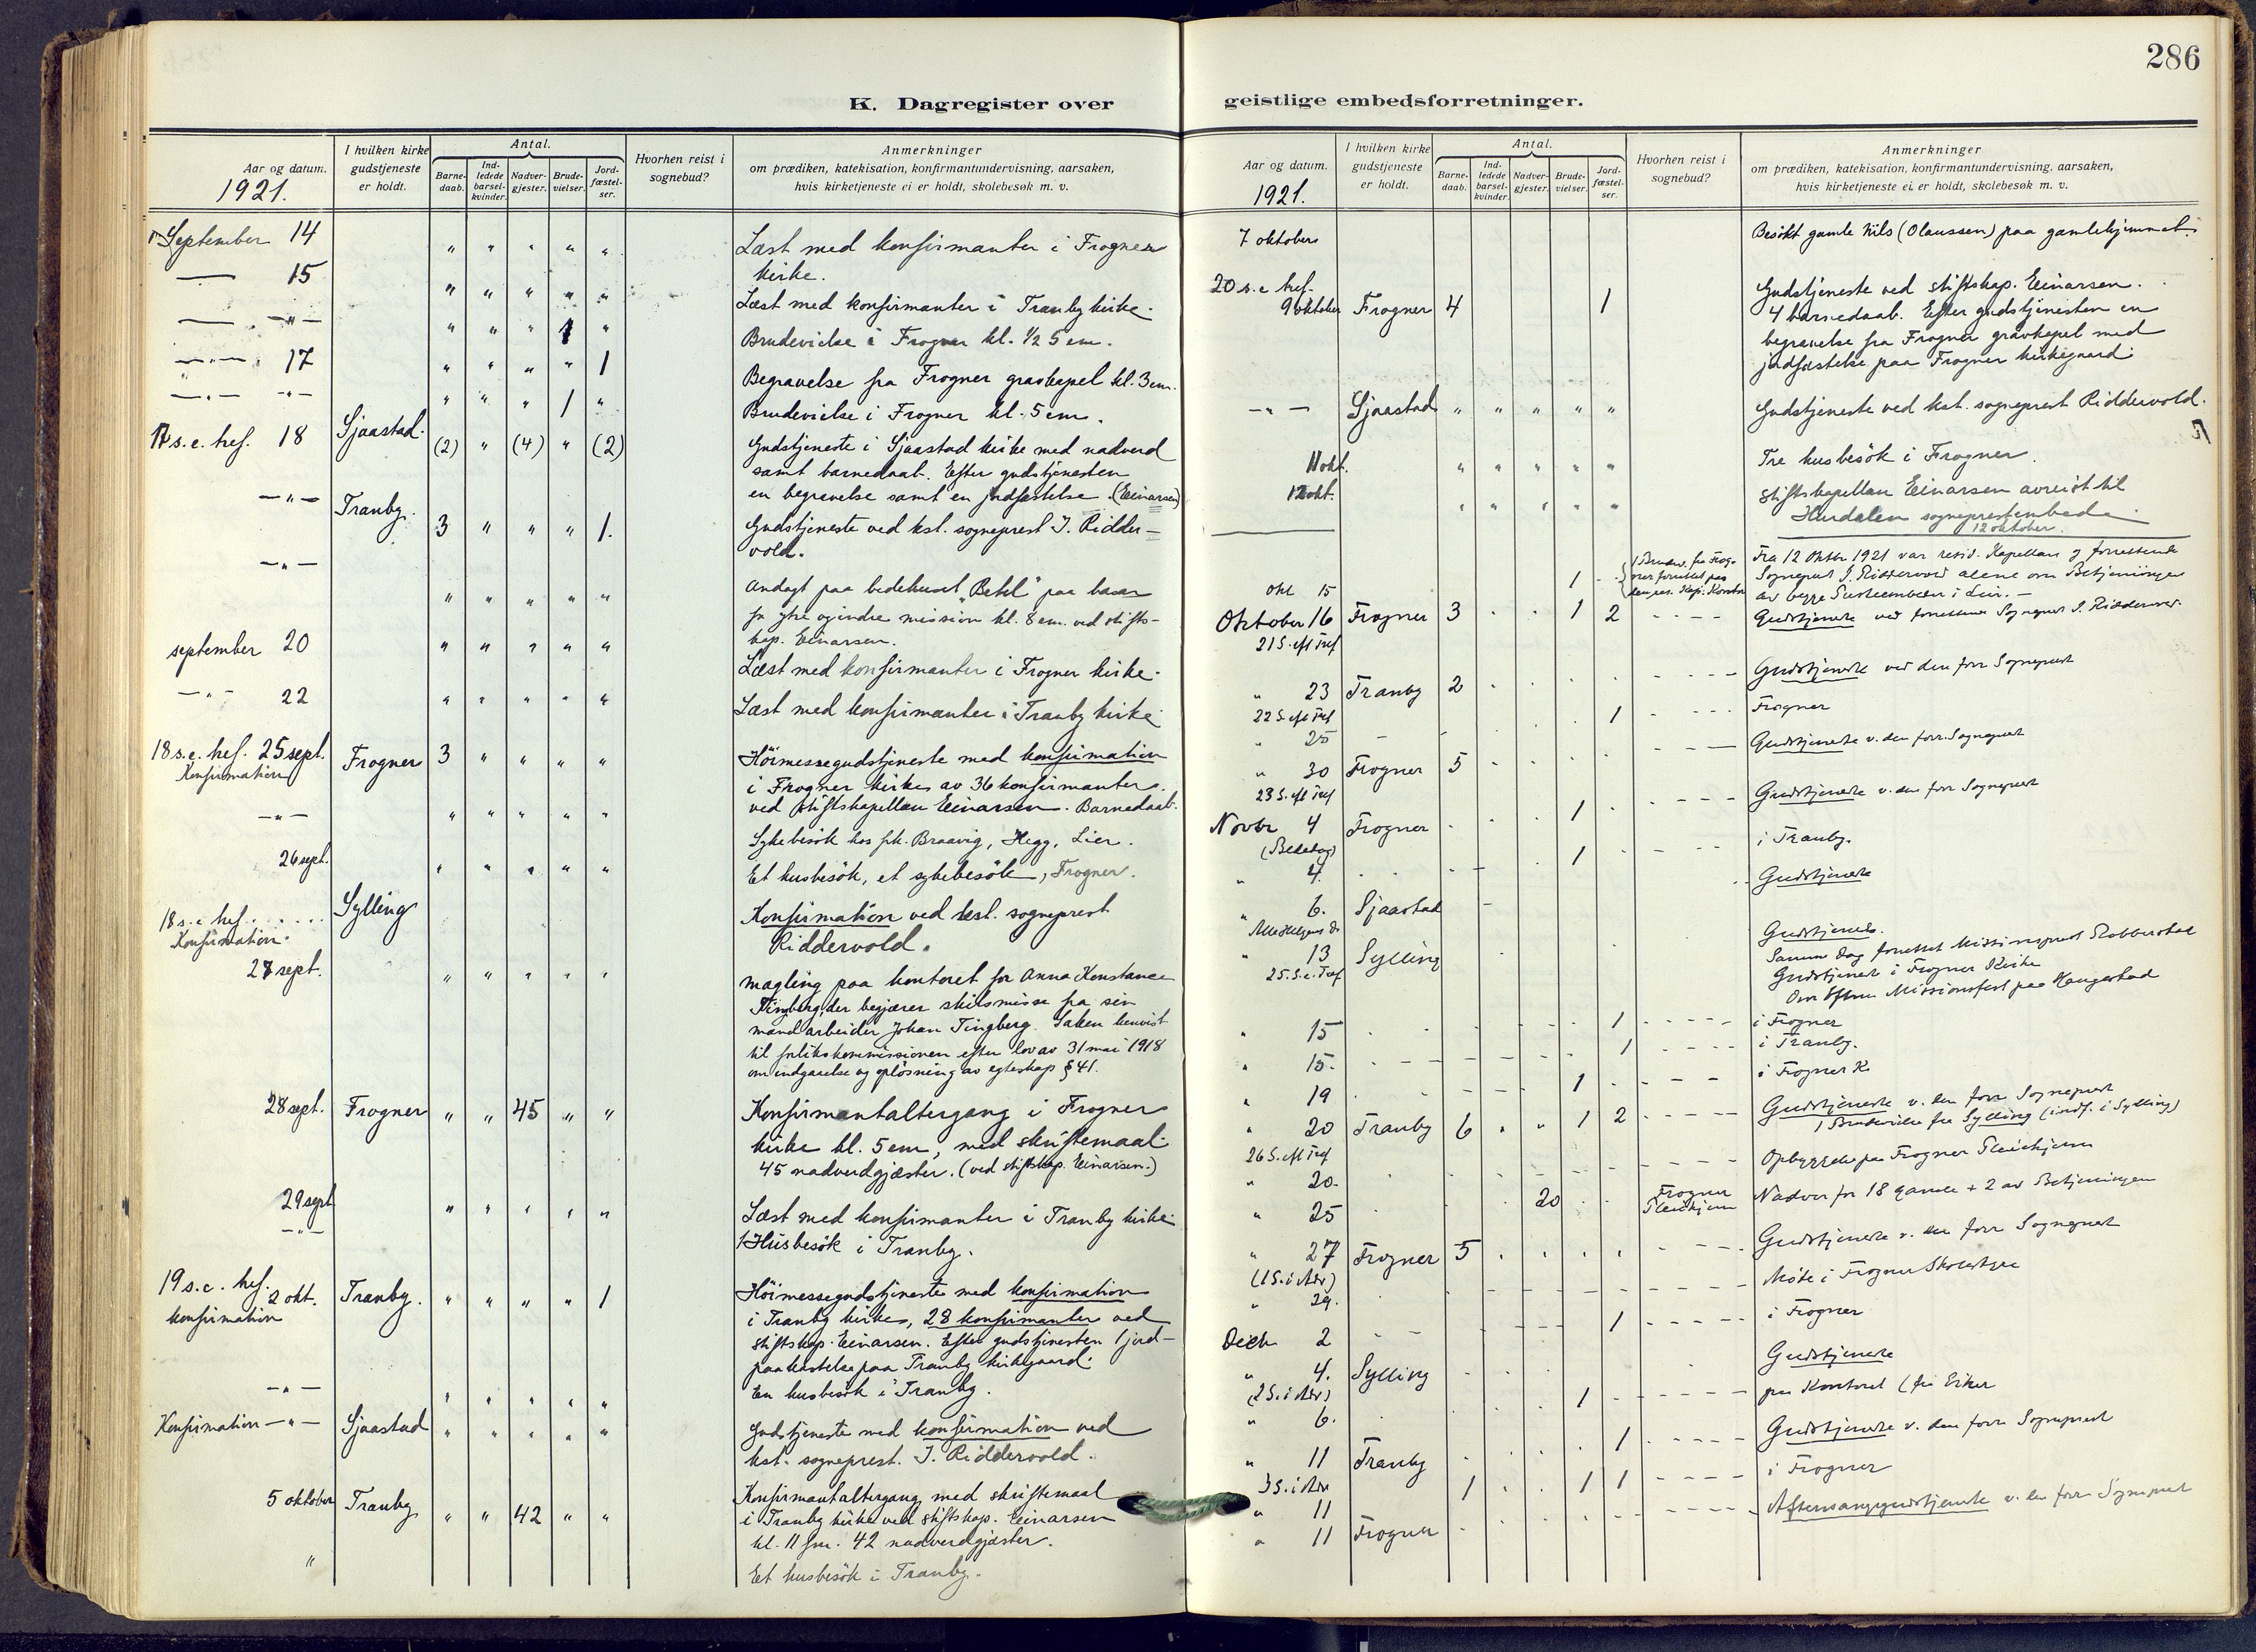 K. Dagregister over
Aar og datum.
1921.
I hvilken kirke gudstjeneste er holdt.
Antal.
Barne-daab.
Ind-ledede barsel-kvinder.
Nadver-gjester.
Brude-vielser.
Jord-fæstel-ser.
Hvorhen reist i sognebud?
Anmerkninger
om prædiken, katekisation, konfirmantundervisning, aarsaken,
hvis kirketjeneste ei er holdt, skolebesøk m. v.
September 14 " " " " " Læst med konfirmanter i Frogner
kirke.
— 15 " " " " " Læst med konfirmanter i Tranby kirke.
— " — " " " 1 " Brudevielse i Frogner kl. 1/2 5 em.
— " — 17 " " " " 1 Begravelse fra Frogner gravkapel kl. 3 em.
— " — " " " " 1 " Brudevielse i Frogner kl. 5 em.
17 s. e. tref. 18 Sjaastad. (2) " (4) " (2) Gudstjeneste i Sjaastad kirke med nadverd
samt barnedaab. Efter gudstjenesten
en begravelse samt en jordfæstelse. (Einarsen)
— " — Tranby. 3 " " " 1. Gudstjeneste ved kst. sogneprest J. Ridder-
vold.
— " — " " " " " Andagt paa bedehuset "Betel" paa basar
for ytre og indre mission kl. 8 em. ved stifts-
kap. Einarsen.
september 20 " " " " " Læst med konfirmanter i Frogner kirke.
— " — 22 " " " " " Læst med konfirmanter i Tranby kirke
18 s. e. tref. 25 sept. Frogner 3 " " " " Höimessegudstjeneste med konfirmation
Konfirmation i Frogner kirke av 36 konfirmanter
ved stiftskapellan Einarsen. Barnedaab.
— " — " " " " " Sykebesök hos frk. Braavig, Hegg, Lier.
26 sept. " " " " " Et husbesök, et sykebesök, Frogner.
18 s. e. tref. Sylling Konfirmation ved kst. sogneprest
Konfirmation. Riddervold.
27 sept. " " " " " mægling paa kontoret for Anna Konstance
Tingberg, der begjærer skilsmisse fra sin
mand arbeider Johan Tingberg. Saken henvist
til forlikskommissionen efter lov av 31 mai 1918
om indgaaelse og oplösning av egteskap § 41.
28 sept. Frogner " " 45 " " Konfirmantaltergang i Frogner
kirke kl. 5 em, med skriftemaal.
45 nadverdgjæster. (ved stiftskap. Einarsen.)
29 sept " " " " " Læst med konfirmanter i Tranby kirke.
— " — 1 Husbesök i Tranby.
19 s. e. tref. 2 okt. Tranby. " " " " 1 Höimessegudstjeneste med konfirmation
konfirmation i Tranby kirke, 28 konfirmanter ved
stiftskap. Einarsen. Efter gudstjenesten 1 jord-
paakastelse paa Tranby kirkegaard.
— " — " " " " " En husbesök i Tranby.
Konfirmation — " — Sjaastad " " " " " Gudstjeneste med konfirmation ved
kst. sogneprest. J. Riddervold.
5 oktober Tranby " " 42 " " Konfirmantaltergang med skriftemaal
i Tranby kirke ved stiftskap. Einarsen
kl. 11 fm. 42 nadverdgjæster.
" Et husbesök i Tranby.
286
geistlige embedsforretninger.
Aar og datum.
1921.
I hvilken kirke gudstjeneste er holdt.
Antal.
Barne-daab.
Ind-ledede barsel-kvinder.
Nadver-gjester.
Brude-vielser.
Jord-fæstel-ser.
Hvorhen reist i sognebud?
Anmerkninger
om prædiken, katekisation, konfirmantundervisning, aarsaken,
hvis kirketjeneste ei er holdt, skolebesøk m. v.
7 oktober Besökt gamle Nils (Olaussen) paa gamlehjemmet.
20 s. e. tref.
9 oktober Frogner 4 1 Gudstjeneste ved stiftskap. Einarsen.
4 barnedaab. Efter gudstjenesten en
begravelse fra Frogner gravkapel med
jordfæstelse paa Frogner kirkegaard.
— " — Sjaastad " " " " " Gudstjeneste ved kst. sogneprest Riddervold.
11 okt. " " " " " Tre husbesök i Frogner.
12 okt. " " " " " Stiftskapellan Einarsen avreist til
Hurdalen sogneprestembede
12 oktober.
Fra 12 Oktbr 1921 var resid. Kapellan og forrettende
okt 15 1 Sogneprest J. Riddervold alene om Betjeningen
av begge
Oktober 16 Frogner 3 . . 1 2 Gudstjeneste ved forrettende Sogneprest J. Riddervold.
21 S. eft Tref
" 23 Tranby 2 Gudstjeneste ved den forr Sogneprest
22 S. eft Tref
" 25 1 Frogner
" 30 Frogner 5 Gudstjeneste v. den forr. Sogneprest
23 S. eft Tref
Novbr 4 Frogner 1 Gudstjeneste v. den forr Sogneprest
(Bededag)
" 4. 1 i Tranby.
" 6. Sjaastad Gudstjeneste
Alle Helgens D.
" 13 Sylling Gudstjeneste.
25. S. e. Tref Samme Dag forrettet Missionsprest
Gudstjenest i Frogner Kirke
Om Eftm Missionsfest paa Haugestad
" 15 1 i Frogner
" 15. 1 i Tranby.
" 19 1 i Frogner K.
" 20 Tranby 6 " " 1 2 Gudstjeneste v. den forr Sogneprest
26 S. eft Tref 1 Brudevielse fra Sylling (indf. i Sylling)
" 20. Opbyggelse paa Frogner Pleiehjem
" 25 20 Frogner Pleiehjem Nadver for 18 gamle + 2 av Betjeningen
" 27 Frogner 5 Gudstjeneste v. den forr Sogneprest
(1 S. i Adv)
" 29. Möte i Frogner Skolestyre
Decbr 2 1 i Frogner
" 4. Sylling Gudstjeneste
(2 S. i Adv)
" 6. 1 paa Kontoret (fra Eiker
" 11 Tranby 1 Gudstjeneste v. den forr Sogneprest
3 S. i Adv
" 11 1 1 1 i Frogner
" 11 Frogner Aftensangsgudstjeneste v. den forr Sogneprest